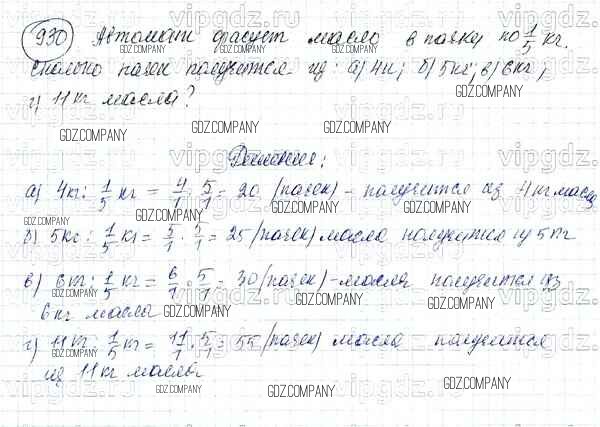 930 Автомат фасует масло в пачки по 1/5 кг.
Сколько пачек получится из: а) 4 кг; б) 5 кг; в) 6 кг;
г) 11 кг масла?
Решение:
а) 4 кг : 1/5 кг = 4/1 · 5/1 = 20 (пачек) – получится из 4 кг масла
б) 5 кг : 1/5 кг = 5/1 · 5/1 = 25 (пачек) масла получится из 5 кг
в) 6 кг : 1/5 кг = 6/1 · 5/1 = 30 (пачек) – масла получится из
6 кг масла
г) 11 кг : 1/5 кг = 11/1 · 5/1 = 55 (пачек) масла получится
из 11 кг масла.
GDZ.COMPANY
vipgdz.ru